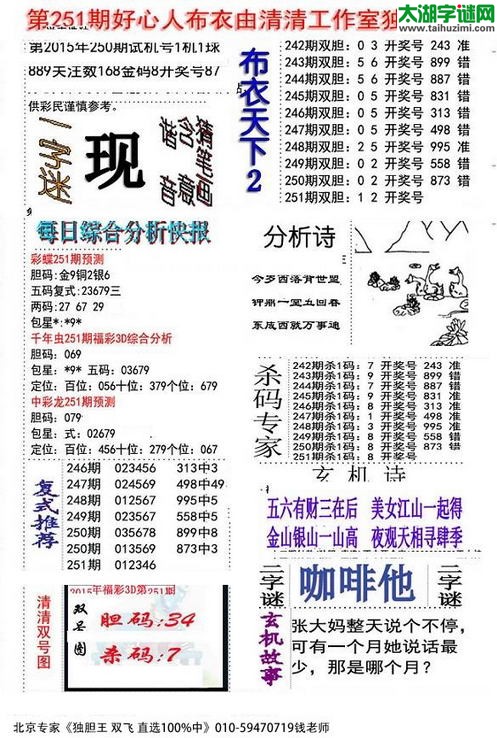 太湖字谜网
www.taihuzimi.com
第251期好心人布衣由清清工作室独
第2015年250期试机号1机1球
889关注数168金码8开奖号87
供彩民谨慎参考。
一字迷
现
猜笔画
含意
谐音
布衣天下2
242期双胆：0 3 开奖号 243 准
243期双胆：5 6 开奖号 899 错
244期双胆：5 6 开奖号 887 错
245期双胆：0 5 开奖号 831 错
246期双胆：0 5 开奖号 313 错
247期双胆：0 5 开奖号 498 错
248期双胆：2 5 开奖号 995 准
249期双胆：0 2 开奖号 558 错
250期双胆：0 2 开奖号 873 错
251期双胆：1 2 开奖号
每日综合分析快报
彩蝶251期预测
胆码：金9铜2银6
五码复式：23679三
两码：27 67 29
包星：*9*
千年虫251期福彩3D综合分析
胆码：069
包星：*9* 五码式：03679
定位：百位：056十位：379个位：679
中彩龙251期预测
胆码：079
包星： 式：02679
定位：百位：456十位：279个位：067
分析诗
今多西落背世盟
钾鼎一室五回春
东成西就万事通
杀码专家
242期杀1码：7 开奖号 243 准
243期杀1码：9 开奖号 899 错
244期杀1码：8 开奖号 887 错
245期杀1码：8 开奖号 831 错
246期杀1码：3 开奖号 313 错
247期杀1码：1 开奖号 498 准
248期杀1码：3 开奖号 995 准
249期杀1码：9 开奖号 558 错
250期杀1码：9 开奖号 873 错
251期杀1码：8 开奖号
复式推荐
246期 023456 313中3
247期 024569 498中49
248期 012567 995中5
249期 023567 558中5
250期 035678 899中8
250期 013567 873中3
251期 012346
玄机诗
五六有财三在后 美女江山一起得
金山银山一山高 夜观天相寻肆季
清清双号图
2015年福彩3D第251期
双号图
胆码：34
杀码：7
三字谜
咖啡他
三字谜
玄机故事
张大妈整天说个不停，
可有一个月她说话最
少，那是哪个月？
北京专家《独胆王 双飞 直选100%中》010-59470719钱老师